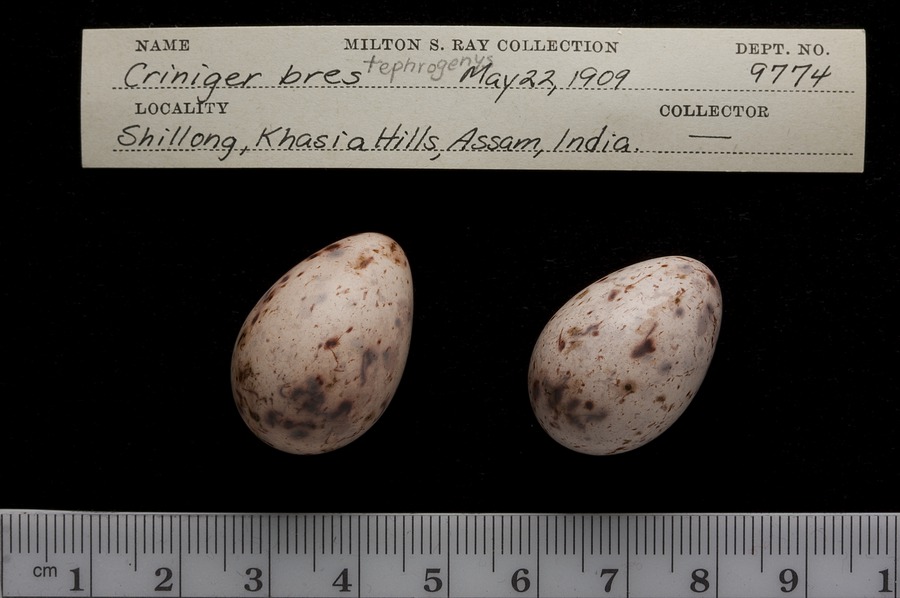 NAME MILTON S. RAY COLLECTION DEPT. NO.
Criniger bres tephrogenys May 22, 1909 9774
LOCALITY COLLECTOR
Shillong, Khasia Hills, Assam, India. —
cm 1 2 3 4 5 6 7 8 9 1